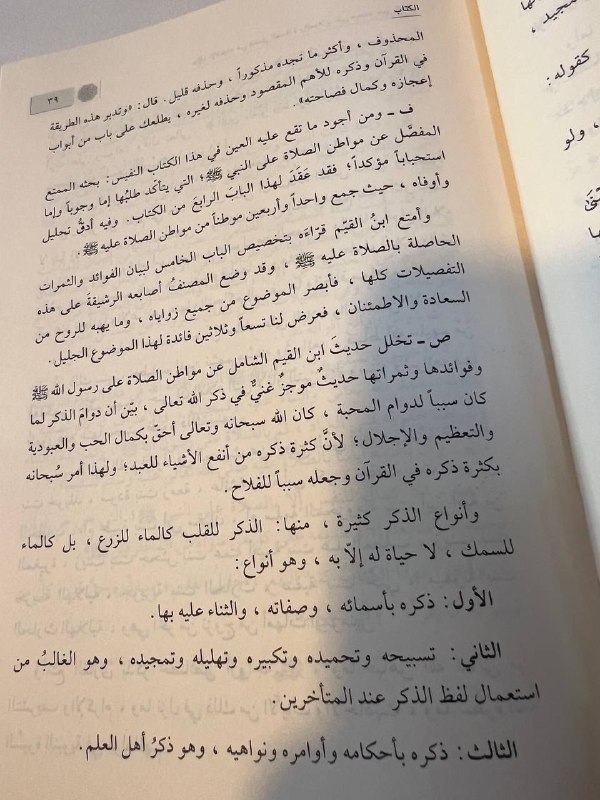 الكتاب
٣٩
المحذوف ، وأكثر ما تجده مذكوراً ، وحذفه قليل. قال: «وتدبر هذه الطريقة
في القرآن وذكره للأهم المقصود وحذفه لغيره ، يطلعك على باب من أبواب
إعجازه وكمال فصاحته».
ف ـ ومن أجود ما تقع عليه العين في هذا الكتاب النفيس: بحثه الممتع
المفصَّل عن مواطن الصلاة على النبي ﷺ؛ التي يتأكد طلبُها إما وجوباً وإما
استحباباً مؤكداً؛ فقد عَقَدَ لهذا البابَ الرابعَ من الكتاب. وفيه أدقُّ تحليل
وأوفاه ، حيث جمع واحداً وأربعين موطناً من مواطن الصلاة عليه ﷺ.
وأمتع ابنُ القيّم قرّاءَه بتخصيص الباب الخامس لبيان الفوائد والثمرات
الحاصلة بالصلاة عليه ﷺ ، وقد وضع المصنفُ أصابعه الرشيقةَ على هذه
التفصيلات كلها ، فأبصر الموضوع من جميع زواياه ، وما يهبه للروح من
السعادة والاطمئنان ، فعرض لنا تسعاً وثلاثين فائدة لهذا الموضوع الجليل.
ص ـ تخلل حديثَ ابن القيم الشامل عن مواطن الصلاة على رسول الله ﷺ
وفوائدها وثمراتها حديثٌ موجزٌ غنيٌّ في ذكر الله تعالى ، بيّن أن دوامَ الذكر لما
كان سبباً لدوام المحبة ، كان الله سبحانه وتعالى أحقّ بكمال الحب والعبودية
والتعظيم والإجلال؛ لأنَّ كثرة ذكره من أنفع الأشياء للعبد؛ ولهذا أمر سُبحانه
بكثرة ذكره في القرآن وجعله سبباً للفلاح.
وأنواع الذكر كثيرة ، منها: الذكر للقلب كالماء للزرع ، بل كالماء
للسمك ، لا حياة له إلاّ به ، وهو أنواع:
الأول: ذكره بأسمائه ، وصفاته ، والثناء عليه بها.
الثاني: تسبيحه وتحميده وتكبيره وتهليله وتمجيده ، وهو الغالبُ من
استعمال لفظ الذكر عند المتأخرين.
الثالث: ذكره بأحكامه وأوامره ونواهيه ، وهو ذكرُ أهل العلم.
كقوله:
ولو